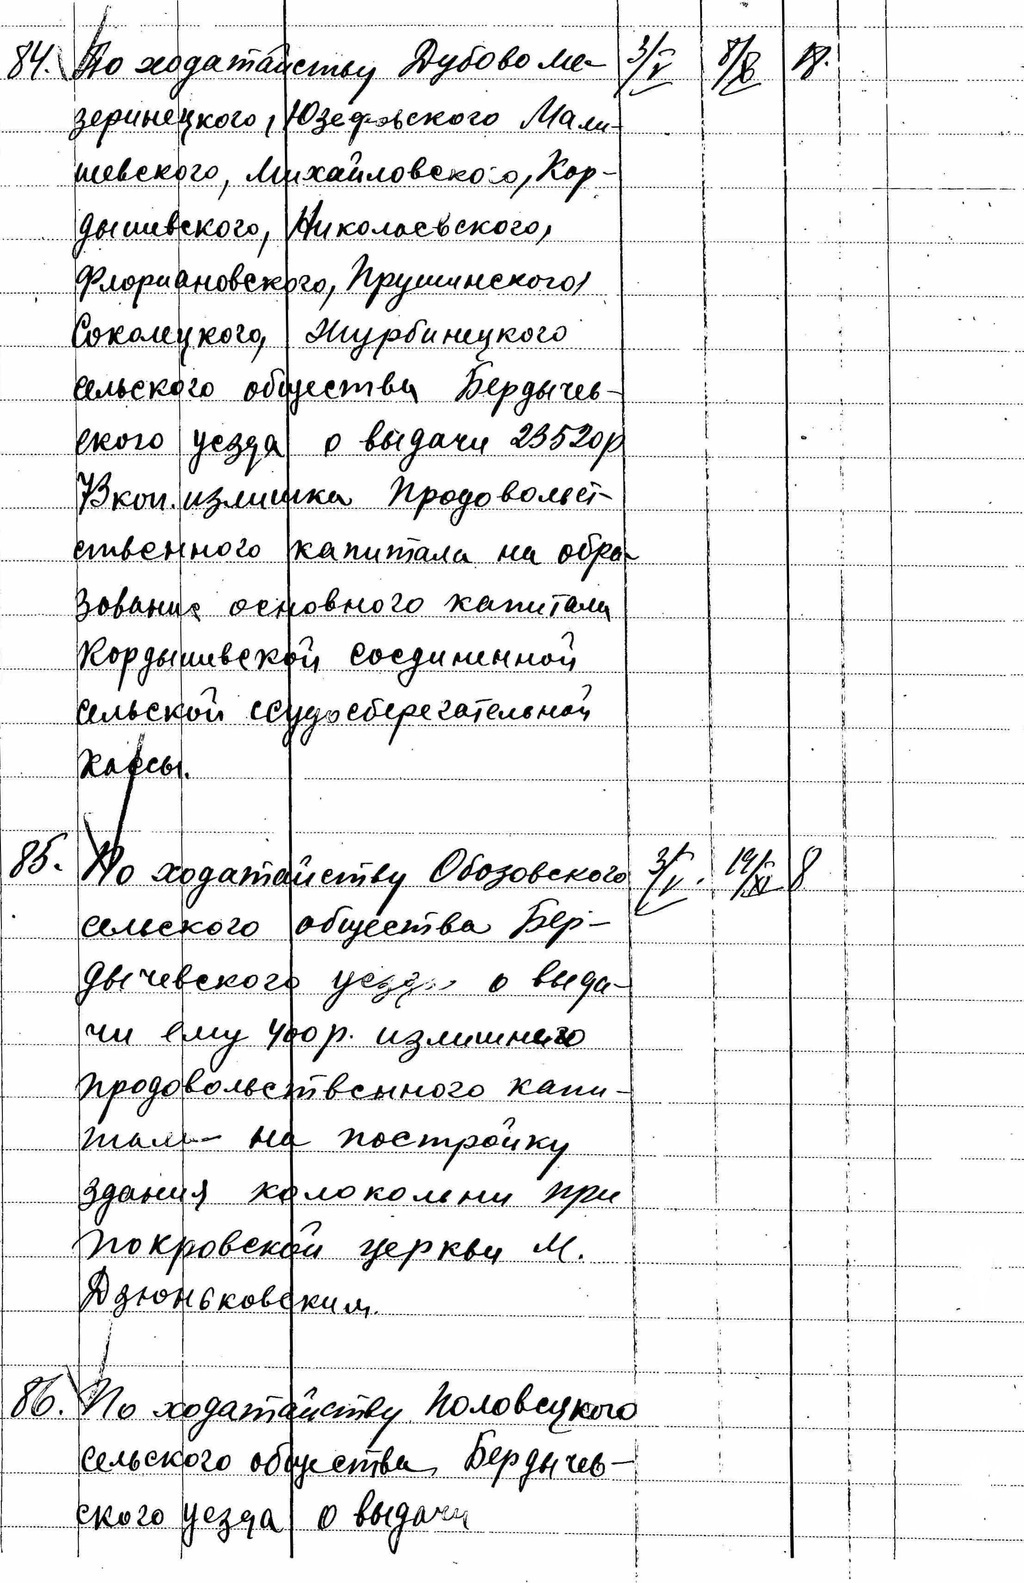 84. По ходатайству Дубово ме- 3/V 8/X 18.
зеринецкого, Юзефовского Мали-
шевского, Михайловского, Кор-
дышевского, Николаевского,
Флориановского, Прушинского,
Соколецкого, Журбинецкого
сельского общества Бердычев-
ского уезда о выдачи 23520р
73 коп. излишка продовольст-
ственного капитала на обра-
зование основного капитала
Кордышевской соединенной
сельской ссудосберегательной
кассы.
85. По ходатайству Обозовского 3/V. 19/XI 8
сельского общества Бер-
дычевского уезда о выда-
чи ему 400р. излишнего
продовольственного капи-
тала на постройку
здания колокольни при
Покровской церкви М.
Дзюньковским.
86. По ходатайству Половецкого
сельского общества Бердычев-
ского уезда о выдачи